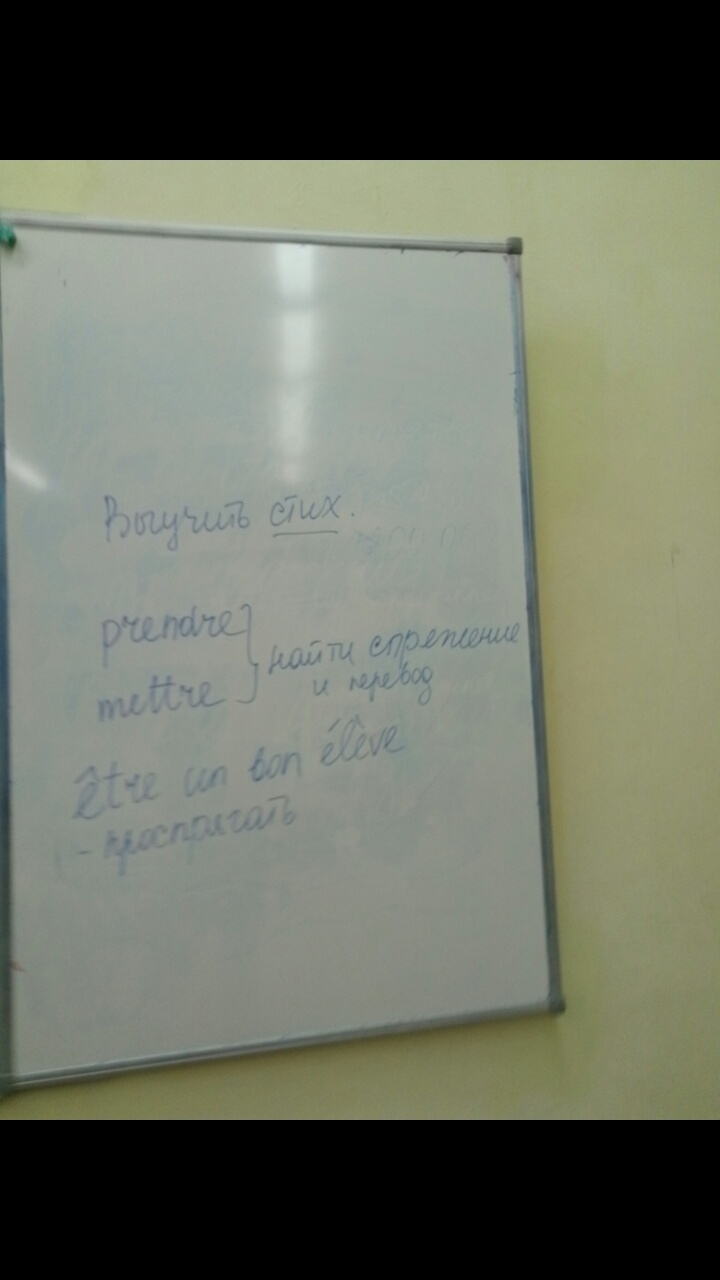 Выучить стих.
prendre
mettre
} найти спряжение
и перевод
être un bon élève
- проспрягать